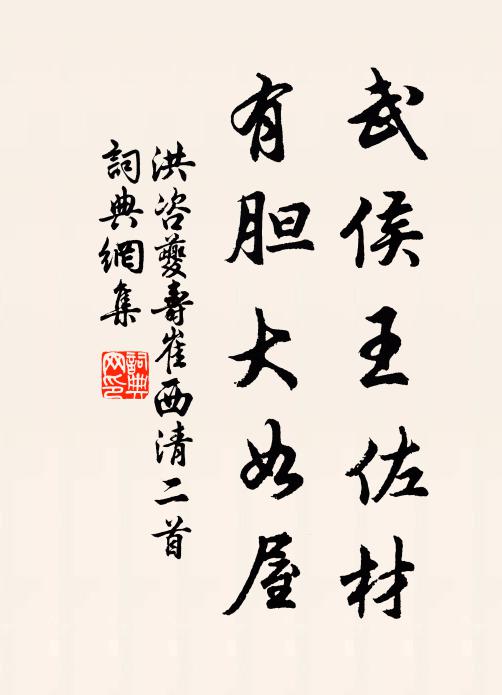 武侯王佐材
有胆大如屋
洪咨夔壽崔西清二首
詞典網集
詞典网印